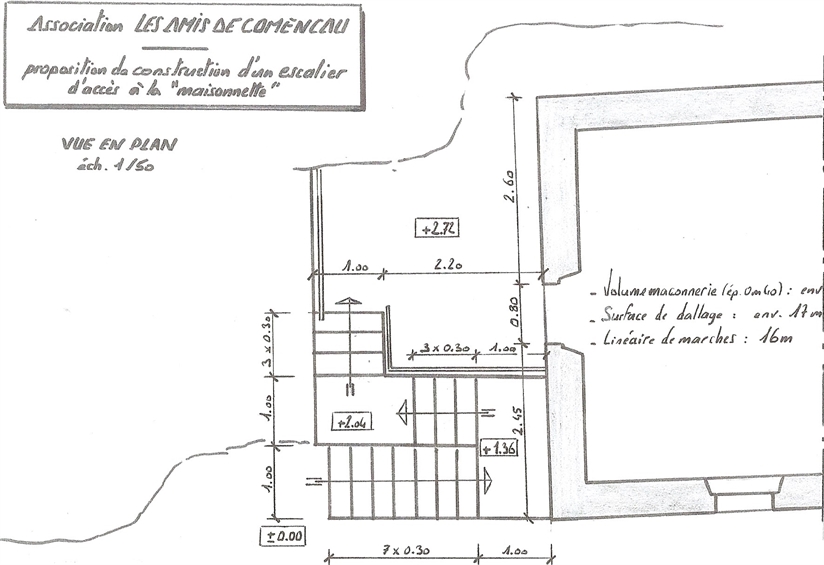 Association LES AMIS DE COMENCAU
proposition de construction d'un escalier
d'accès à la "maisonnette"
VUE EN PLAN
éch. 1/50
2.60
+2.72
1.00
2.20
- Volume maconnerie (ép. 0m40) : env
- Surface de dallage : env. 17m
- Linéaire de marches : 16m
0.80
3 x 0.30
3 x 0.30
1.00
1.00
+2.04
2.45
+1.36
1.00
±0.00
7 x 0.30
1.00